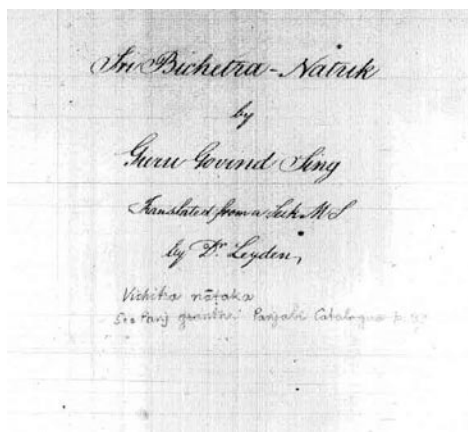 Sri Bichetra-Natuk
by
Guru Govind Sing
Translated from a Seek MS
by Dr Leyden,
Vichitra nāṭaka
See Panj granthi Panjabi Catalogue p.